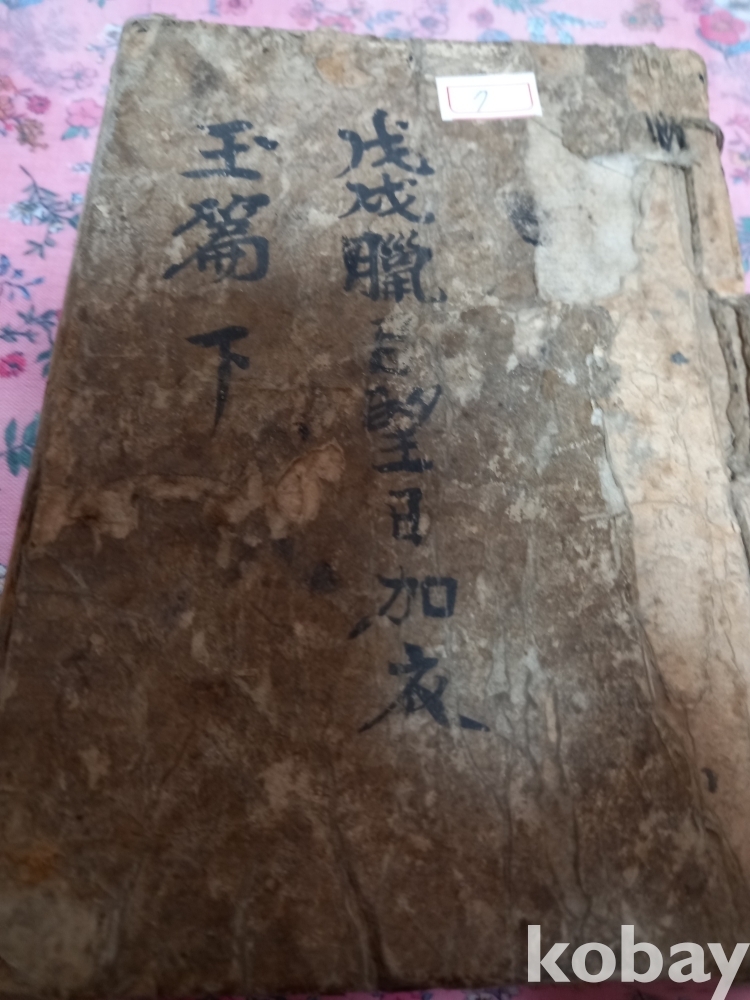 戊戌臘之望日加衣
玉篇 下
kobay